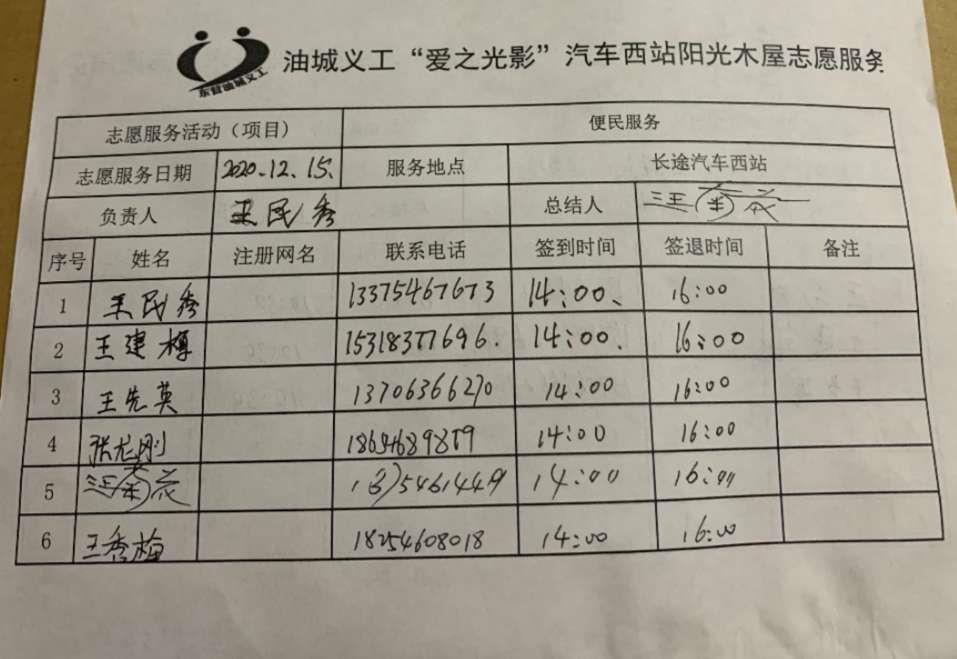 东营油城义工
油城义工“爱之光影”汽车西站阳光木屋志愿服务
志愿服务活动（项目） 便民服务
志愿服务日期 2020.12.15. 服务地点 长途汽车西站
负责人 王民秀 总结人
序号 姓名 注册网名 联系电话 签到时间 签退时间 备注
1 王民秀 13375467673 14:00、 16:00
2 王建 15318377696. 14:00. 16:00
3 王先英 13706366270 14:00 16:00
4 张龙刚 14:00 16:00
5 14:00 16:00
6 王秀梅 18254608018 14:00 16:00